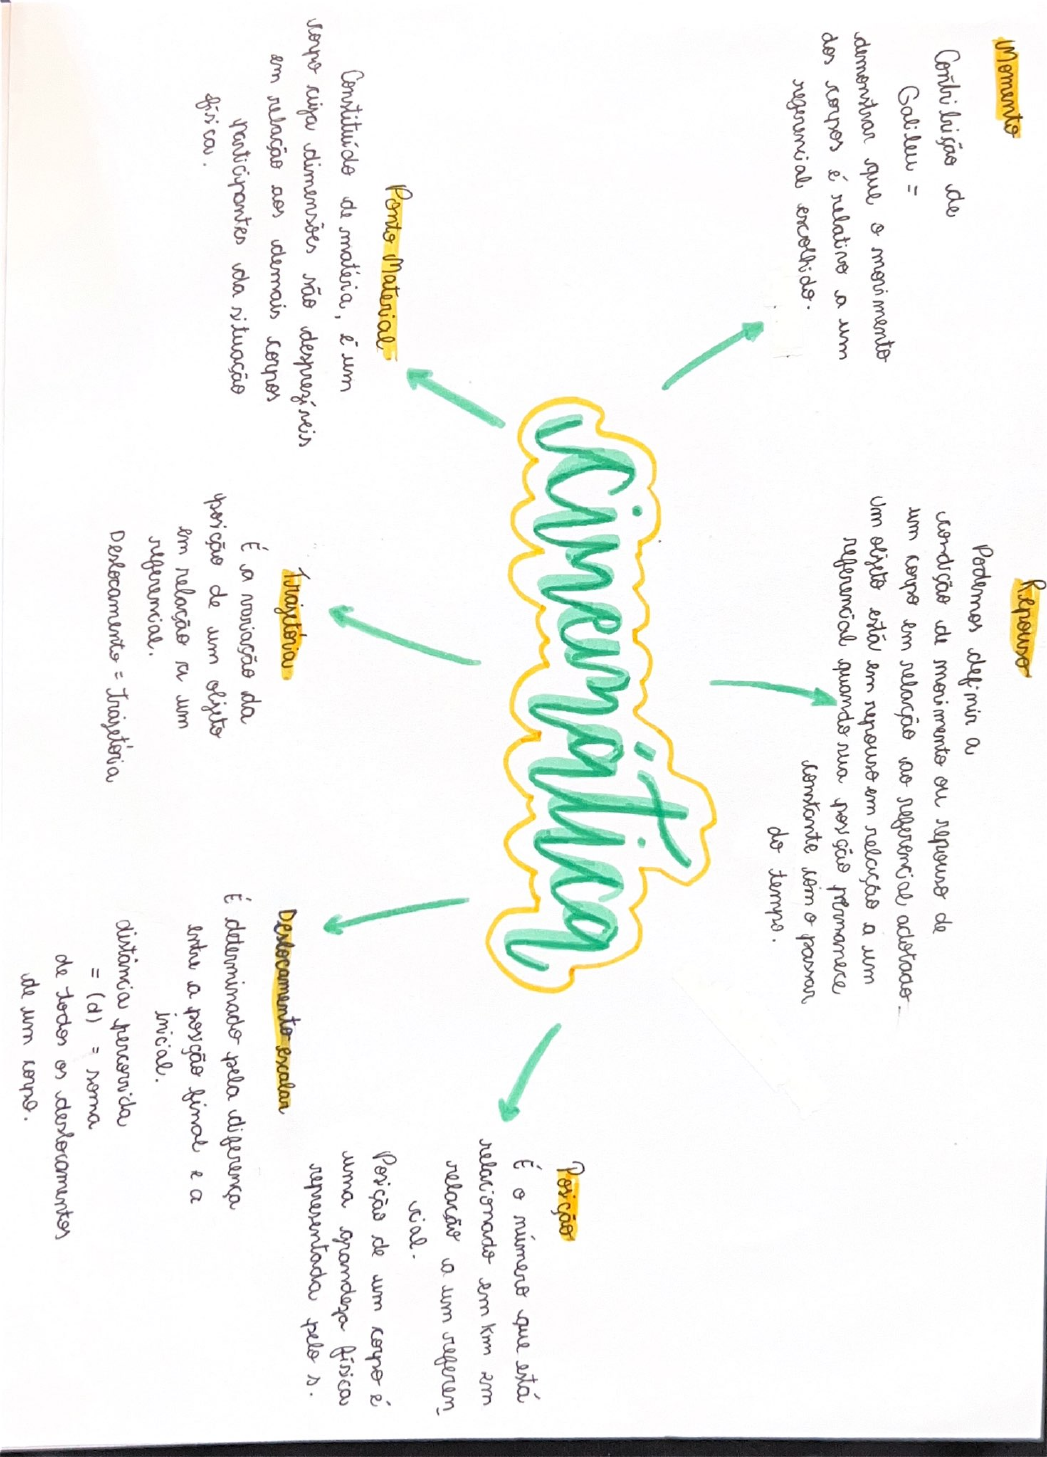 Momento
Contribição de
Galileu =
demonstrar que o movimento
dos corpos é relativo a um
referencial escolhido.
Repouso
Podemos definir a
condição de movimento ou repouso de
um corpo em relação ao referencial adotado.
Um objeto está em repouso em relação a um
referencial quando sua posição permanece
constante com o passar
do tempo.
cinemática
Ponto Material
Constituído de matéria, é um
corpo cija dimensões são desprezíveis
em relação aos demais corpos
participantes da situação
física.
Trajetória
É a variação da
posição de um objeto
em relação a um
referencial.
Deslocamento = Trajetória
Deslocamento escalar
É determinado pela diferença
entre a posição final e a
inicial.
distância percorrida
= (d) = soma
de todos os deslocamentos
de um corpo.
Posição
É o número que está
relacionado em Km em
relação a um referen
cial.
Posição de um corpo é
uma grandeza física
representada pelo s.